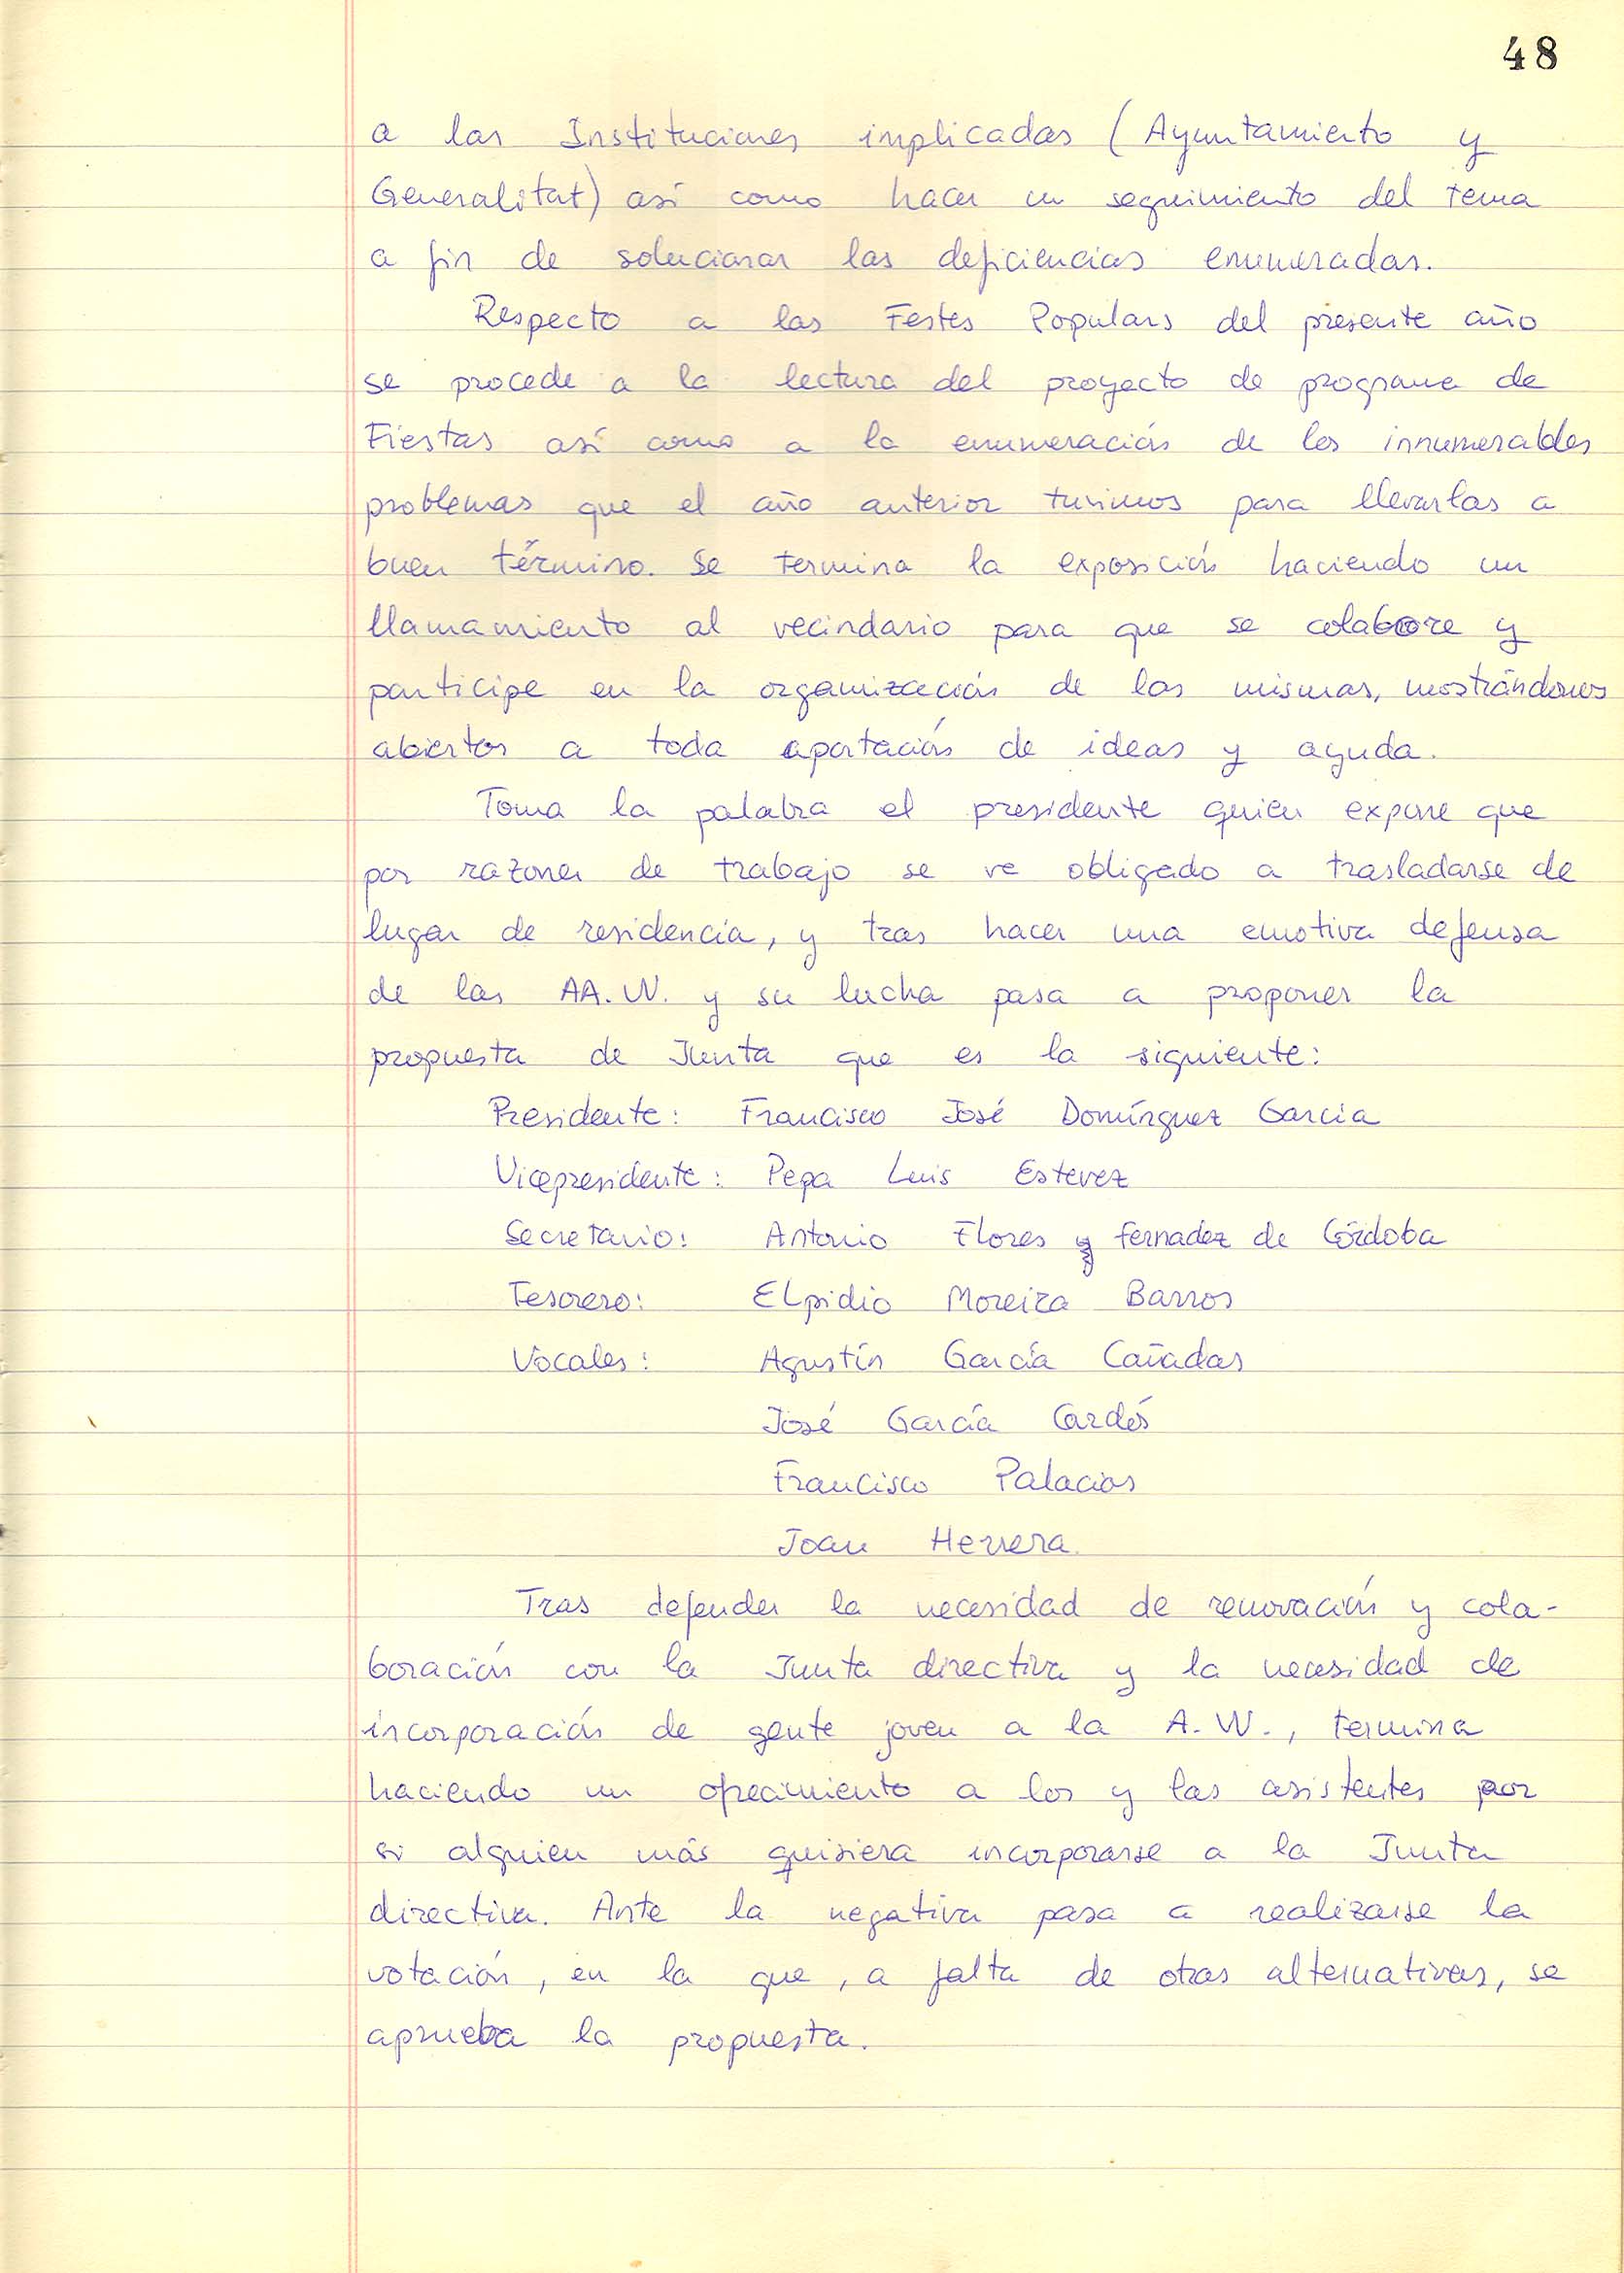 48
a las Instituciones implicadas (Ayuntamiento y
Generalitat) así como hacer un seguimiento del tema
a fin de solucionar las deficiencias enumeradas.
Respecto a las Festes Populars del presente año
se procede a la lectura del proyecto de programa de
Fiestas así como a la enumeración de los innumerables
problemas que el año anterior tuvimos para llevarlas a
buen término. Se termina la exposición haciendo un
llamamiento al vecindario para que se colabore y
participe en la organización de las mismas, mostrándonos
abiertos a toda aportación de ideas y ayuda.
Toma la palabra el presidente quien expone que
por razones de trabajo se ve obligado a trasladarse de
lugar de residencia, y tras hacer una emotiva defensa
de las AA.VV. y su lucha pasa a proponer la
propuesta de Junta que es la siguiente:
Presidente: Francisco José Domínguez García
Vicepresidente: Pepa Luis Estevez
Secretario: Antonio Flores y Fernadez de Córdoba
Tesorero: Elpidio Moreira Barros
Vocales: Agustín García Cañadas
José García Cardós
Francisco Palacios
Joan Herrera
Tras defender la necesidad de renovación y cola-
boración con la Junta directiva y la necesidad de
incorporación de gente joven a la A.VV., termina
haciendo un ofrecimiento a los y las asistentes por
si alguien más quisiera incorporarse a la Junta
directiva. Ante la negativa pasa a realizarse la
votación, en la que, a falta de otras alternativas, se
aprueba la propuesta.